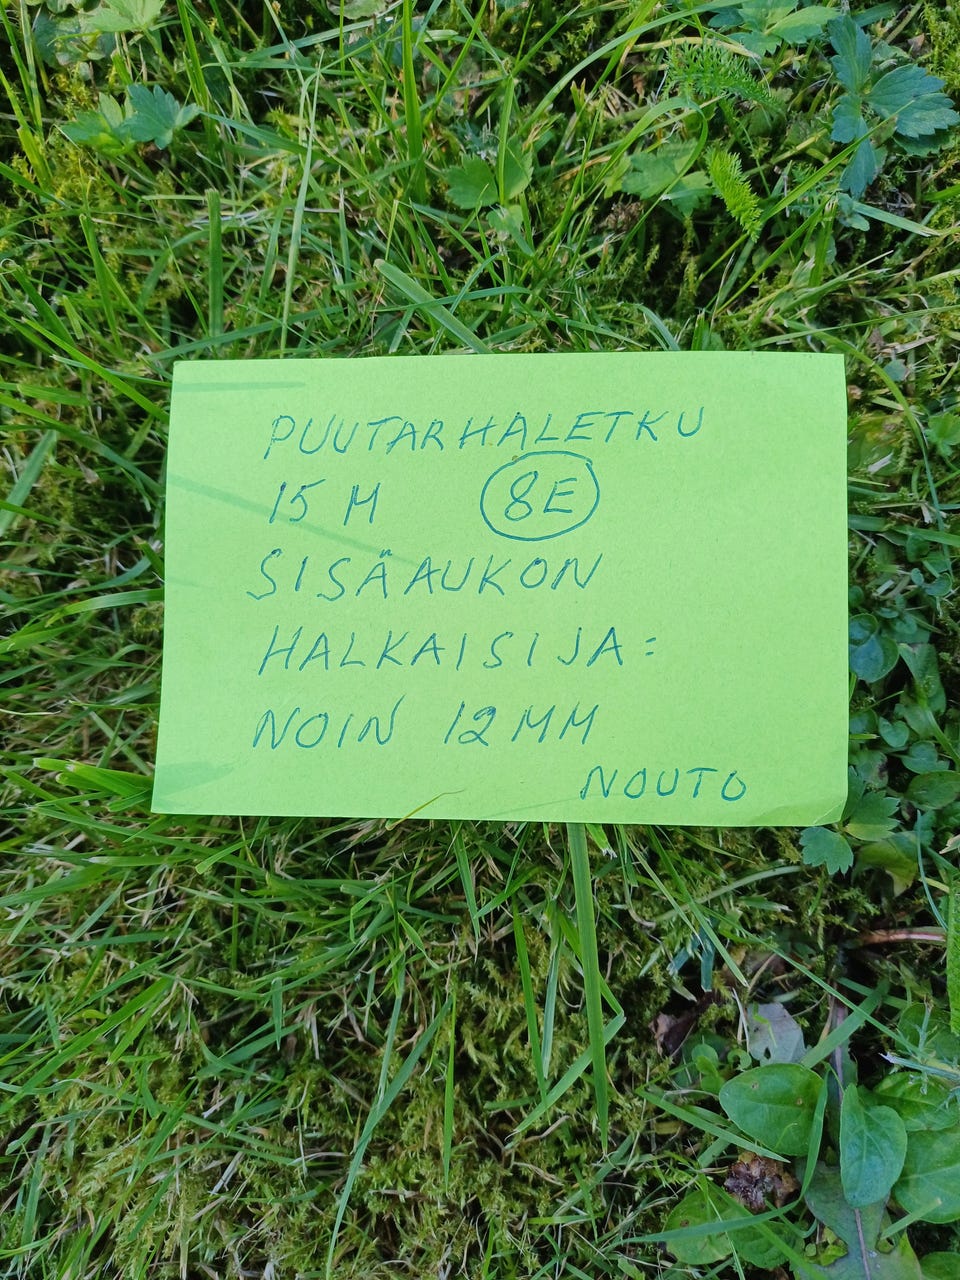 PUUTARHALETKU
15 M 8E
SISÄAUKON
HALKAISIJA:
NOIN 12 MM
NOUTO